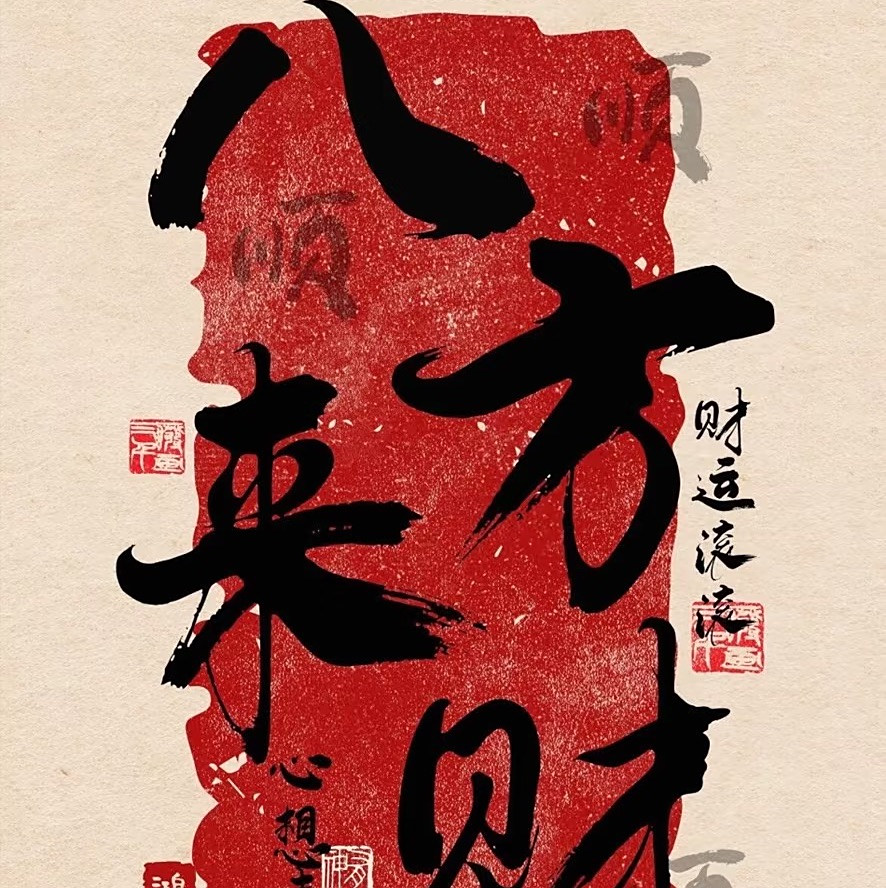 八方来财
顺
顺
财运滚滚
心想